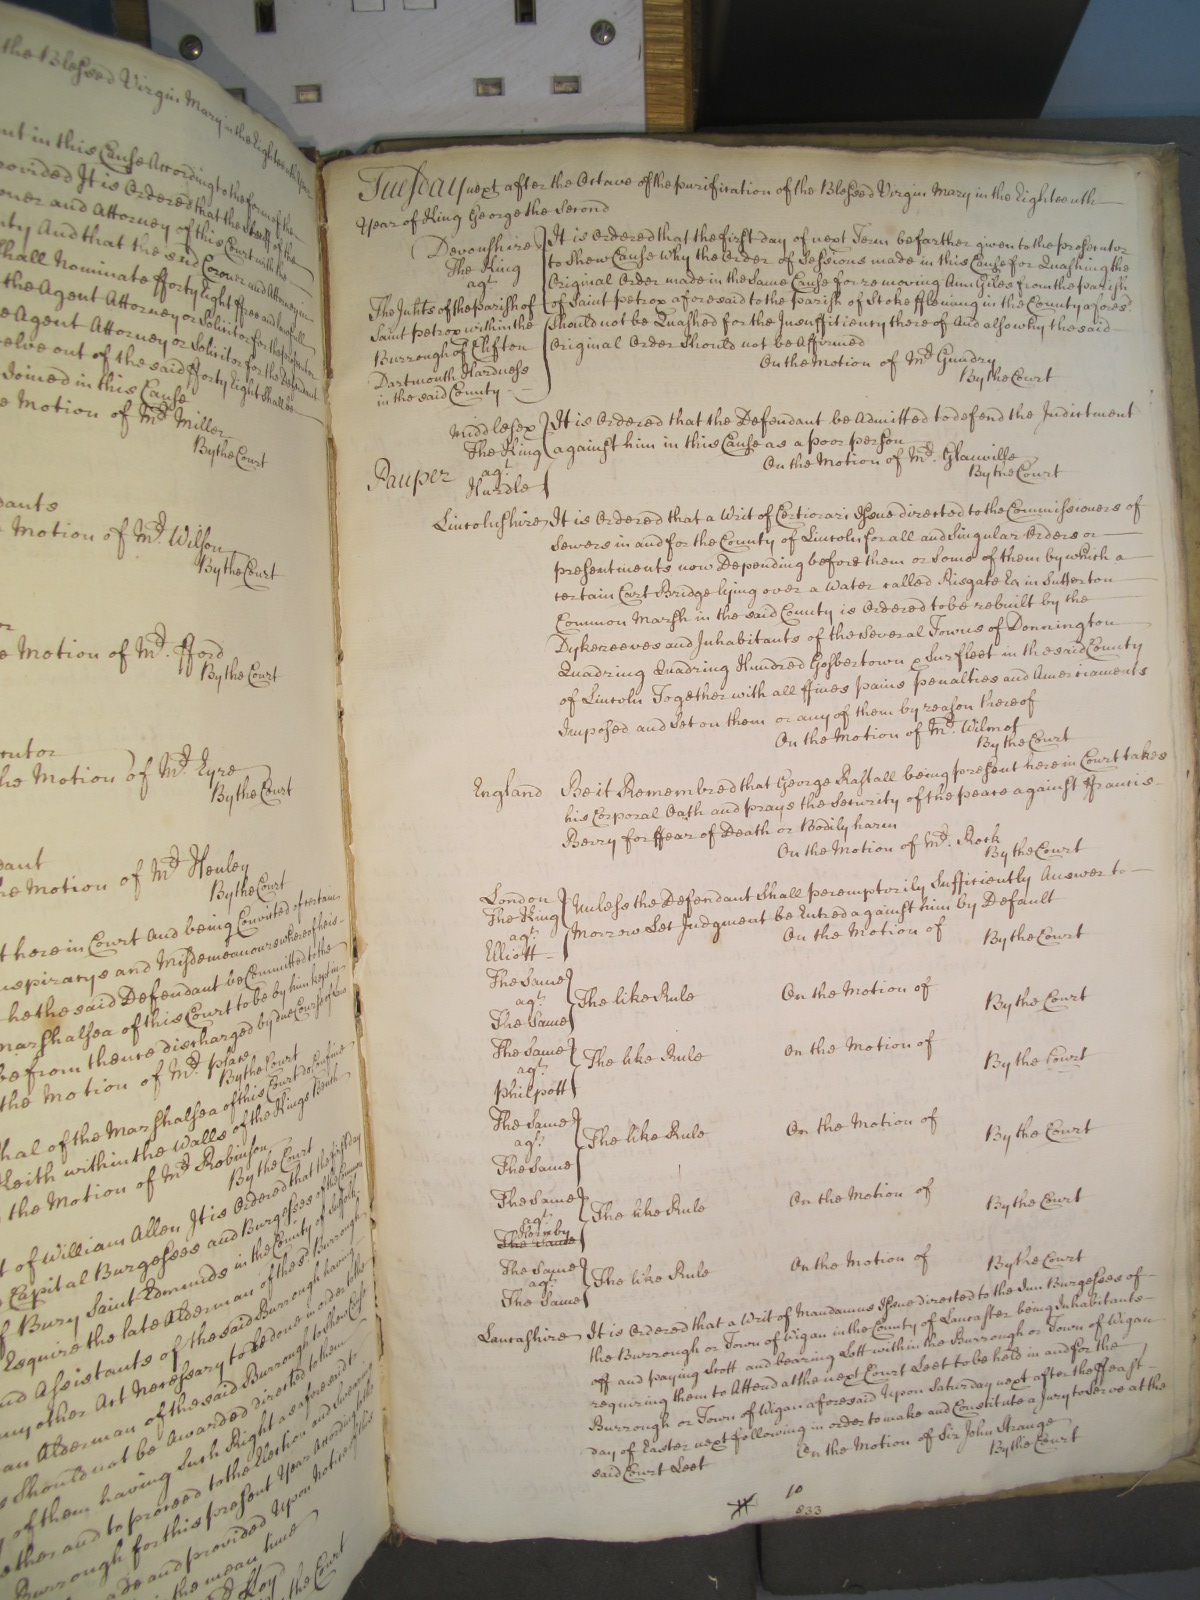 the Blessed Virgin Mary in the Eighteenth Year
in this Cause According to the form of the
provided It is Ordered that the
Coroner and Attorney of this Court with the
And that the said Coroner and Attorney
shall Nominate fforty Eight ffree and lawfull
the Agent Attorney or Solicitor for the prosecutor
Agent Attorney or Solicitor for the Defendant
twelve out of the said fforty Eight shall be
Joined in this Cause
Motion of Mr. Miller
By the Court
Motion of Mr. Wilson
By the Court
Motion of Mr. fford
By the Court
the Motion of Mr. Eyre
By the Court
Motion of Mr. Henley
By the Court
here in Court And being Convicted of certain
and Misdemeanours whereof he is
he the said Defendant be Committed to the
Marshalsea of this Court to be by him kept in
be from thence discharged by due Course of Law
the Motion of Mr. place
By the Court
of the Marshalsea of this Court do Confine
Keith within the Walls of the Kings Bench
the Motion of Mr. Robinson
By the Court
of William Allen It is Ordered that the first day
Capital Burgesses and Burgesses of the Common
of Bury Saint Edmunds in the County of Suffolk
Esquire the late Alderman of the said Burrough
and Assistants of the said Burrough having
any other Act Necessary to be done in order to the
an Alderman of the said Burrough to shew Cause
should not be Awarded directed to them
of them having such Right as aforesaid to
and to proceed to the Election and Swearing
Burrough for this present Year According to the
and provided Upon Notice of this
in the mean time
the Court
Tuesday next after the Octave of the purification of the Blessed Virgin Mary in the Eighteenth
Year of King George the Second
Devonshire
The King
agt.
The Inhits of the parish of
Saint petrox within the
Burrough of Clifton
Dartmouth Hardness
in the said County
It is Ordered that the first day of next Term be farther given to the prosecutor
to shew Cause why the Order of Sessions made in this Cause for Quashing the
Original Order made in the same Cause for removing Ann Giles from the parish
of Saint petrox aforesaid to the parish of Stoke ffleming in the County aforesd.
should not be Quashed for the Insufficiency thereof And also why the said
Original Order should not be Affirmed
On the Motion of Mr. Gundry
By the Court
Pauper
Middlesex
The King
agt.
Hurdle
It is Ordered that the Defendant be Admitted to defend the Indictment
against him in this Cause as a poor person
On the Motion of Mr. Glanville
By the Court
Lincolnshire It is Ordered that a Writ of Certiorari Issue directed to the Commissioners of
Sewers in and for the County of Lincoln for all and Singular Orders or
presentments now Depending before them or some of them by which a
certain Cart Bridge lying over a Water called Risgate Ea in Sutterton
Common Marsh in the said County is Ordered to be rebuilt by the
Dykereeves and Inhabitants of the Several Towns of Donnington
Quadring Quadring Hundred Gosbertown & Surfleet in the said County
of Lincoln Together with all ffines pains penalties and Amerciaments
Imposed and Set on them or any of them by reason thereof
On the Motion of Mr. Wilmot
By the Court
England Be it Remembred that George Rastall being present here in Court takes
his Corporal Oath and prays the Security of the peace against ffrancis
Berry for ffear of Death or Bodily harm
On the Motion of Mr. Rock
By the Court
London
The King
agt.
Elliott
Unless the Defendant shall peremptorily Sufficiently Answer to
Morrow Let Judgment be Entred against him by Default
On the Motion of By the Court
The Same
agt.
The Same
The like Rule On the Motion of By the Court
The Same
agt.
philpott
The like Rule On the Motion of By the Court
The Same
agt.
The Same
The like Rule On the Motion of By the Court
The Same
agt.
Hornby
The Same
The like Rule On the Motion of By the Court
The Same
agt.
The Same
The like Rule On the Motion of By the Court
Lancashire It is Ordered that a Writ of Mandamus Issue directed to the Inn Burgesses of
the Burrough or Town of Wigan in the County of Lancaster being Inhabitants
off and paying Scott and bearing Lott within the Burrough or Town of Wigan
requiring them to Attend at the next Court Leet to be held in and for the
Burrough or Town of Wigan aforesaid Upon Saturday next after the ffeast
day of Easter next following in order to make and Constitute a Jury to Serve at the
said Court Leet
On the Motion of Sir John Strange
By the Court
10
833